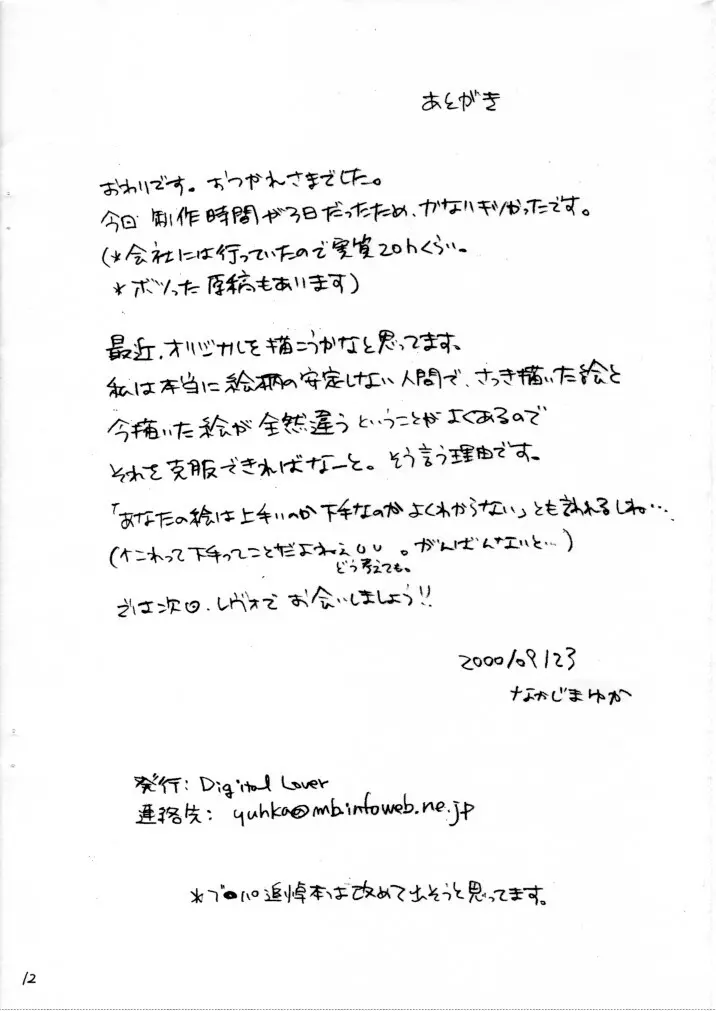 あとがき
おわりです。おつかれさまでした。
今回 制作時間が3日だったため、かなりギリだったです。
(*会社には行っていたので実質20hくらい。
*ボツった原稿もあります)
最近、オリジナルを描こうかなと思ってます。
私は本当に絵柄の安定しない人間で、さっき描いた絵と
今描いた絵が全然違うということがよくあるので
それを克服できればなーと。そう言う理由です。
「あなたの絵は上手いのか下手なのかよくわからない」とも言われるしね…
(これって下手ってことだよねぇ 。がんばんないと…)
どう考えても。
では次回、レヴォでお会いしましょう!!
2000/09/23
なかじまゆか
発行: Digital Lover
連絡先: yuhka@mb.infoweb.ne.jp
*プロパ追悼本は改めて出そうと思ってます。
12